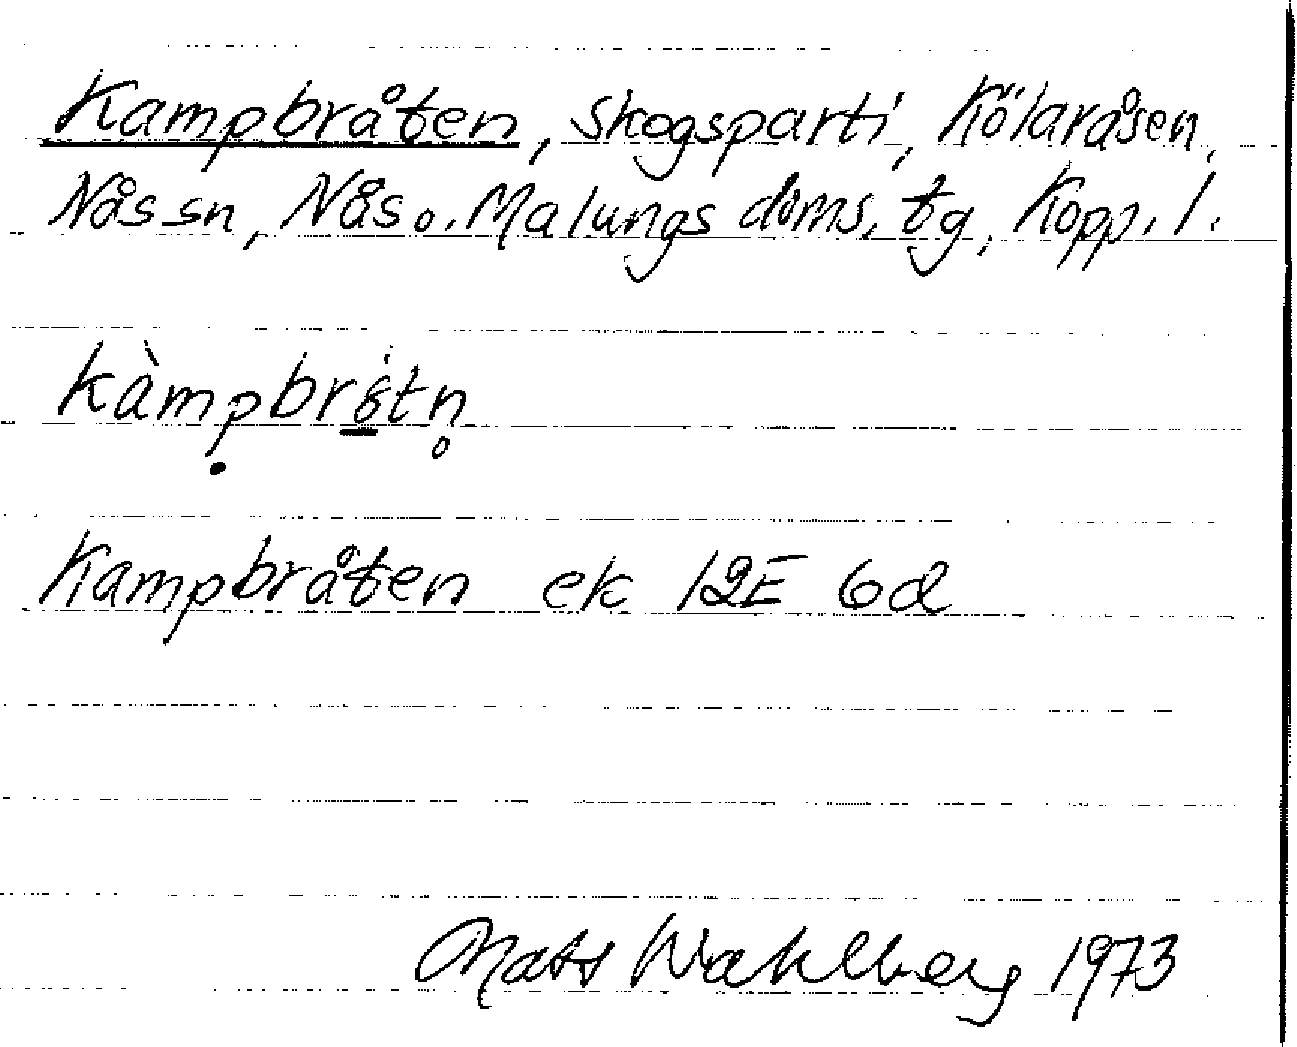 Kampbråten, skogsparti, Kölaråsen,
Nås sn, Nås o. Malungs doms. tg, Kopp. l.
kàmpbrǫ̀tn̥
Kampbråten ek 12E 6d
Mats Wahlberg 1973